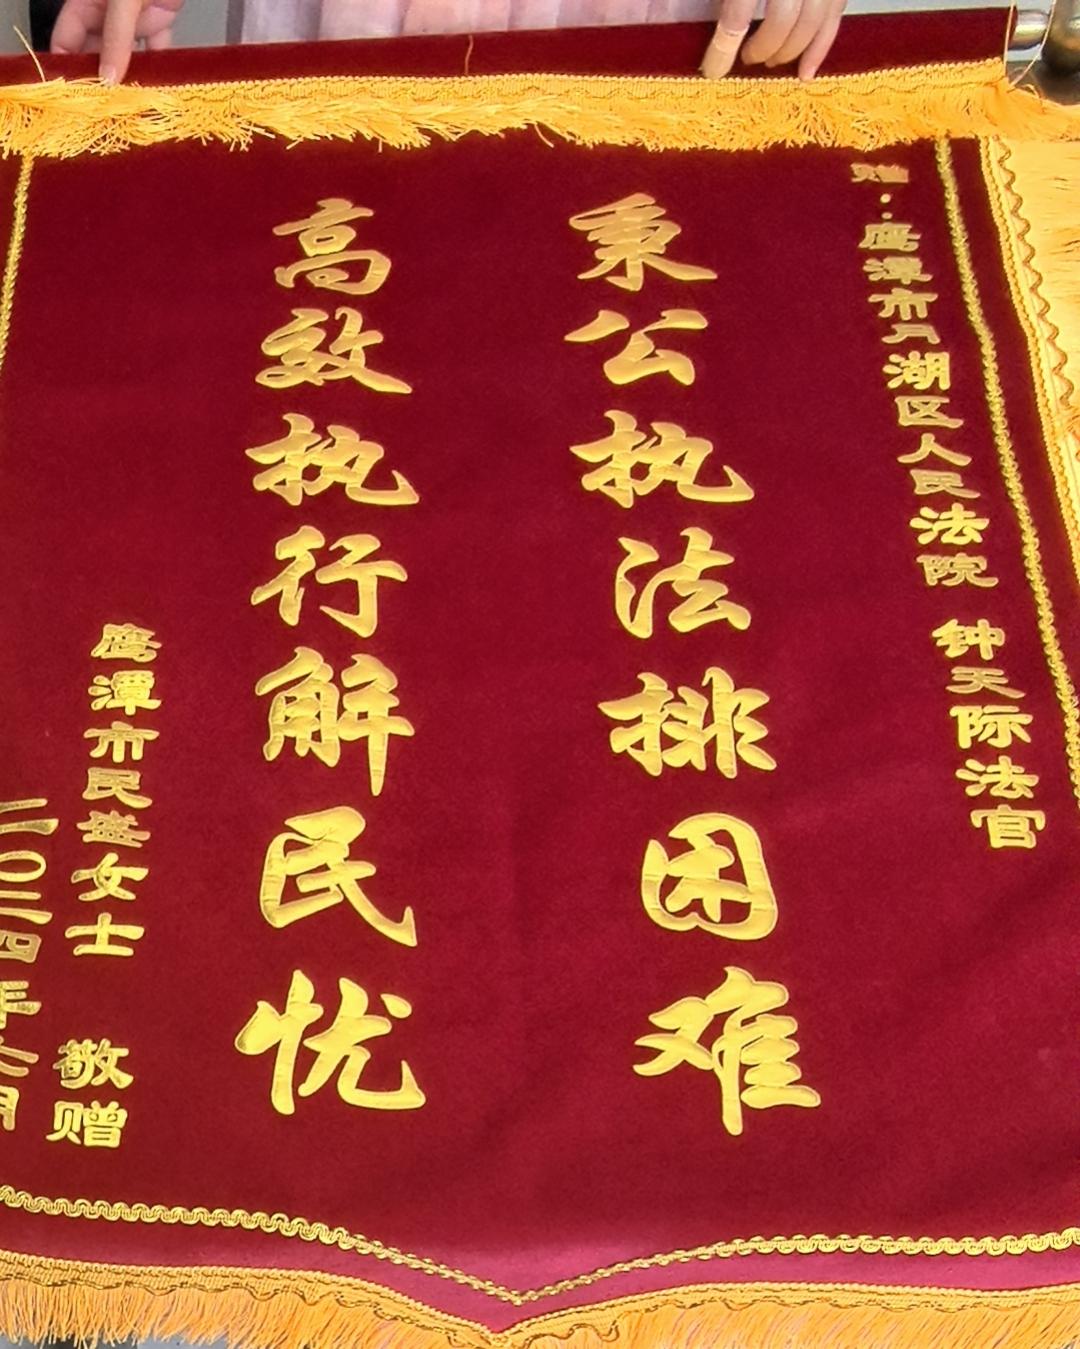 赠：鹰潭市月湖区人民法院 钟天际法官
秉公执法排困难
高效执行解民忧
鹰潭市民姜女士 敬赠
二〇二四年六月